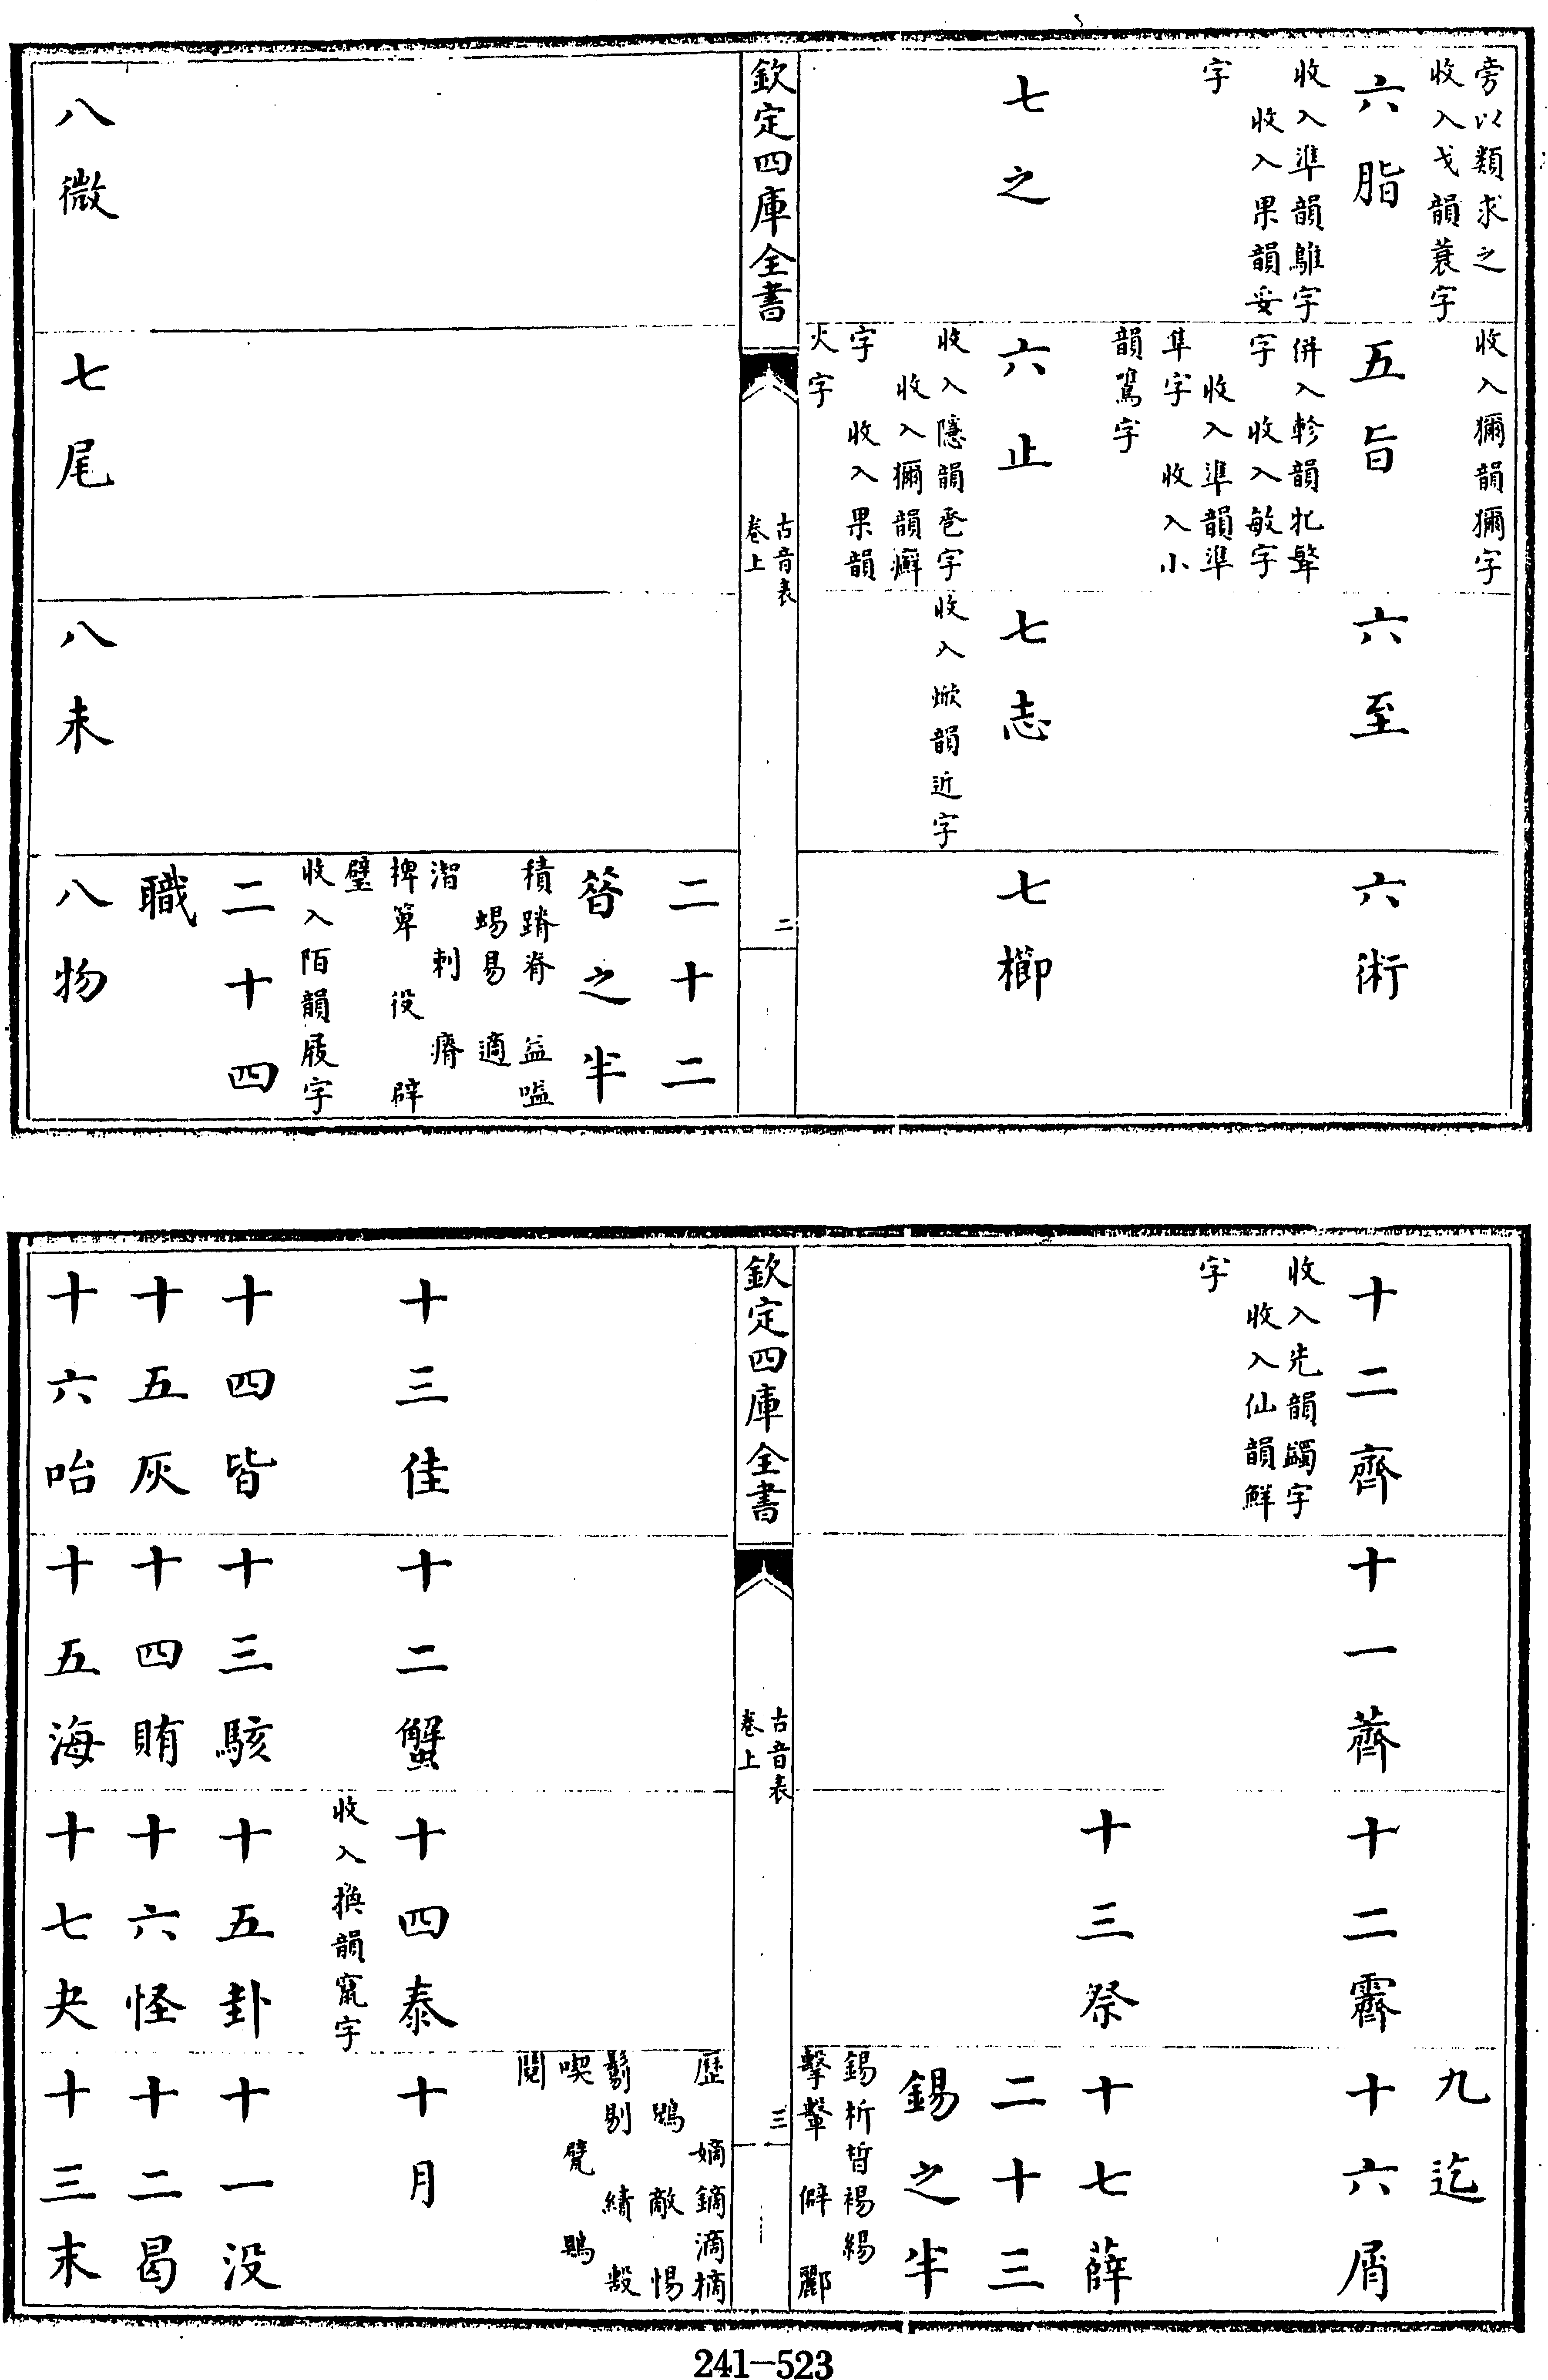 旁以類求之
收入戈韻蓑字
六脂
收入準韻鵻字
收入果韻妥
字
七之
收入獮韻獮字
五旨
併入軫韻牝㲋
字 收入敏字
收入準韻準
隼字 收入小
韻鷕字
六止
收入隱韻巹字
收入獮韻癬
字 收入果韻
火字
六至
七志
收入焮韻近字
六術
七櫛
欽定四庫全書
古音表
卷上
二
八微
七尾
八未
二十二
昔之半
積蹐脊 益嗌
蜴易 適
㴔 刺 瘠
椑箄 役 辟
璧
收入陌韻屐字
二十四
職
八物
十二齊
收入先韻蠲字
收入仙韻鮮
字
十一薺
十二霽
十三祭
九迄
十六屑
十七薛
二十三
錫之半
錫析晳裼緆
擊墼 僻 酈
欽定四庫全書
古音表
卷上
三
歷 嫡鏑滴樀
鶂 敵 惕
鬄剔 績 㱾
喫 甓 鶪
鬩
十三佳
十四皆
十五灰
十六咍
十二蟹
十三駭
十四賄
十五海
十四泰
收入換韻竄字
十五卦
十六怪
十七夬
十月
十一沒
十二曷
十三末
241-523